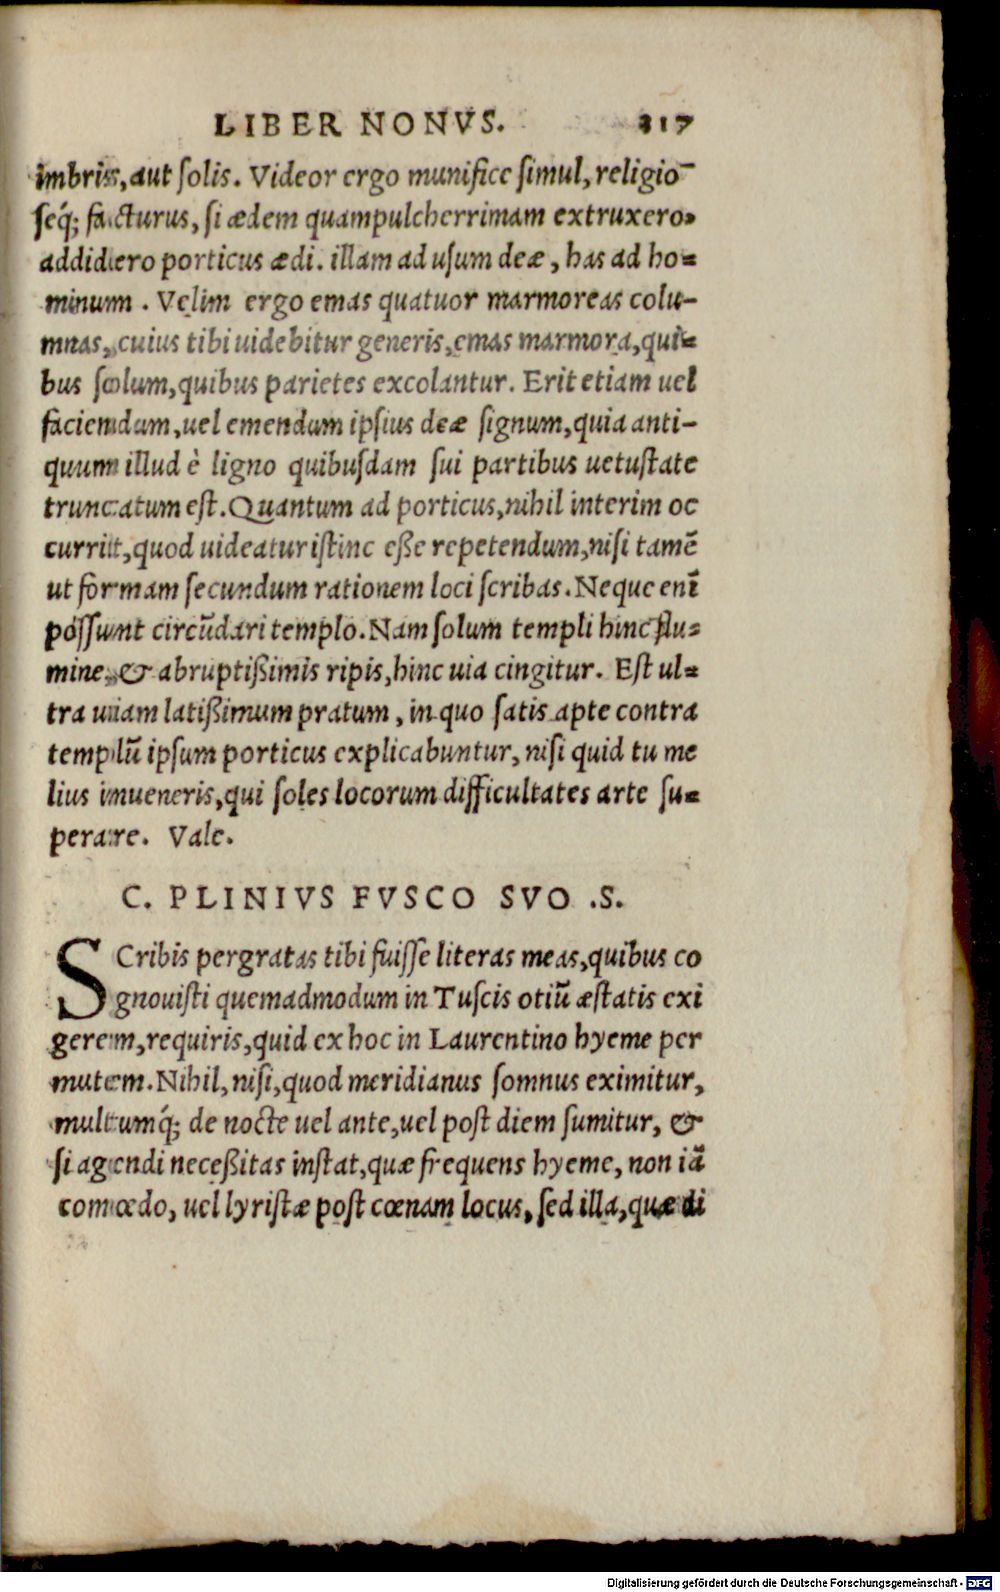 LIBER NONVS. 217
imbris, aut solis. Videor ergo munifice simul, religio-
seq́; facturus, si ædem quampulcherrimam extruxero,
addidero porticus ædi. illam ad usum deæ, has ad ho-
minum . Velim ergo emas quatuor marmoreas colu-
mnas, cuius tibi uidebitur generis, emas marmora, qui-
bus solum, quibus parietes excolantur. Erit etiam uel
faciendum, uel emendum ipsius deæ signum, quia anti-
quum illud è ligno quibusdam sui partibus uetustate
truncatum est. Quantum ad porticus, nihil interim oc
currit, quod uideatur istinc esse repetendum, nisi tamẽ
ut formam secundum rationem loci scribas. Neque enĩ
possunt circũdari templo. Nam solum templi hinc flu-
mine, & abruptißimis ripis, hinc uia cingitur. Est ul-
tra uiam latißimum pratum, in quo satis apte contra
templũ ipsum porticus explicabuntur, nisi quid tu me
lius inueneris, qui soles locorum difficultates arte su-
perare. Vale.
C. PLINIVS FVSCO SVO .S.
SCribis pergratas tibi fuisse literas meas, quibus co
gnouisti quemadmodum in Tuscis otiũ æstatis exi
gerem, requiris, quid ex hoc in Laurentino hyeme per
mutem. Nihil, nisi, quod meridianus somnus eximitur,
multumq́; de nocte uel ante, uel post diem sumitur, &
si agendi neceßitas instat, quæ frequens hyeme, non iã
comœdo, uel lyristæ post cœnam locus, sed illa, quæ di
Digitalisierung gefördert durch die Deutsche Forschungsgemeinschaft - DFG